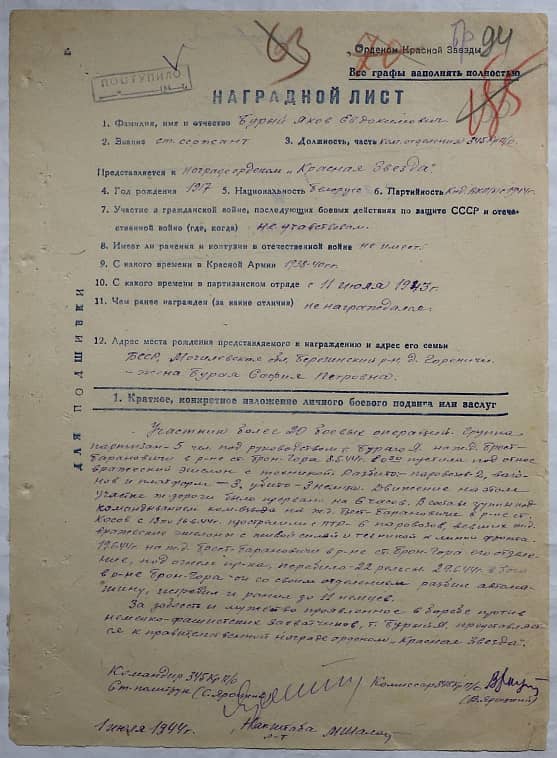 63 70 Пр 94
Орденом Красной Звезды
Все графы заполнять полностью
ПОСТУПИЛО
НАГРАДНОЙ ЛИСТ
1. Фамилия, имя и отчество Бурый Яков Евдокимович
2. Звание ст. сержант 3. Должность, часть ком. отделения 345
Представляется к награде орденом „Красная Звезда"
4. Год рождения 1917 5. Национальность белорус 6. Партийность 1944г.
7. Участие в гражданской войне, последующих боевых действиях по защите СССР и отече-
ственной войне (где, когда) не участвовал.
8. Имеет ли ранения и контузии в отечественной войне не имеет.
9. С какого времени в Красной Армии 1938-40гг.
10. С какого времени в партизанском отряде с 11 июля 1943г.
11. Чем ранее награжден (за какие отличия) не награждался.
12. Адрес места рождения представляемого к награждению и адрес его семьи
БССР, Могилевская обл. Березинский р-н, д.
- жена Бурая София Петровна.
ДЛЯ ПОДШИВКИ
1. Краткое, конкретное изложение личного боевого подвига или заслуг
Участник более 20 боевых операций. Группа
партизан - 5 чел. под руководством т. Бурого Я. на ж.д. Брест-
Барановичи в р-не ст. Брон-Гора 8.5.44г. пустили под откос
вражеский эшелон с техникой. Разбито: паровозов-2, ваго-
нов и платформ - 3, убито-3 немца. Движение на этом
участке ж. дороги было прервано на 6 часов. В составе группы под
командованием на ж.д. Брест-Барановичи в р-не ст.
Косов с 13 по 16.6.44г. прострелили с ПТР-6 паровозов, везших
вражеские эшелоны с живой силой и техникой к линии фронта.
19.6.44г. на ж.д. Брест-Барановичи в р-не ст. Брон-Гора его отделе-
ние, под огнем пр-ка, перебило-22 рельсы. 29.6.44г. в бою
в р-не Брон-Гора он со своим отделением разбил автома-
шину, истребил и ранил до 11 немцев.
За доблесть и мужество проявленное в борьбе против
немецко-фашистских захватчиков, т. Бурый Я. представляет-
ся к правительственной награде орденом „Красная Звезда".
Командир 345 п/о Комиссар 345 п/о
Ст. политрук
1 июля 1944г. Нач. штаба
л-т